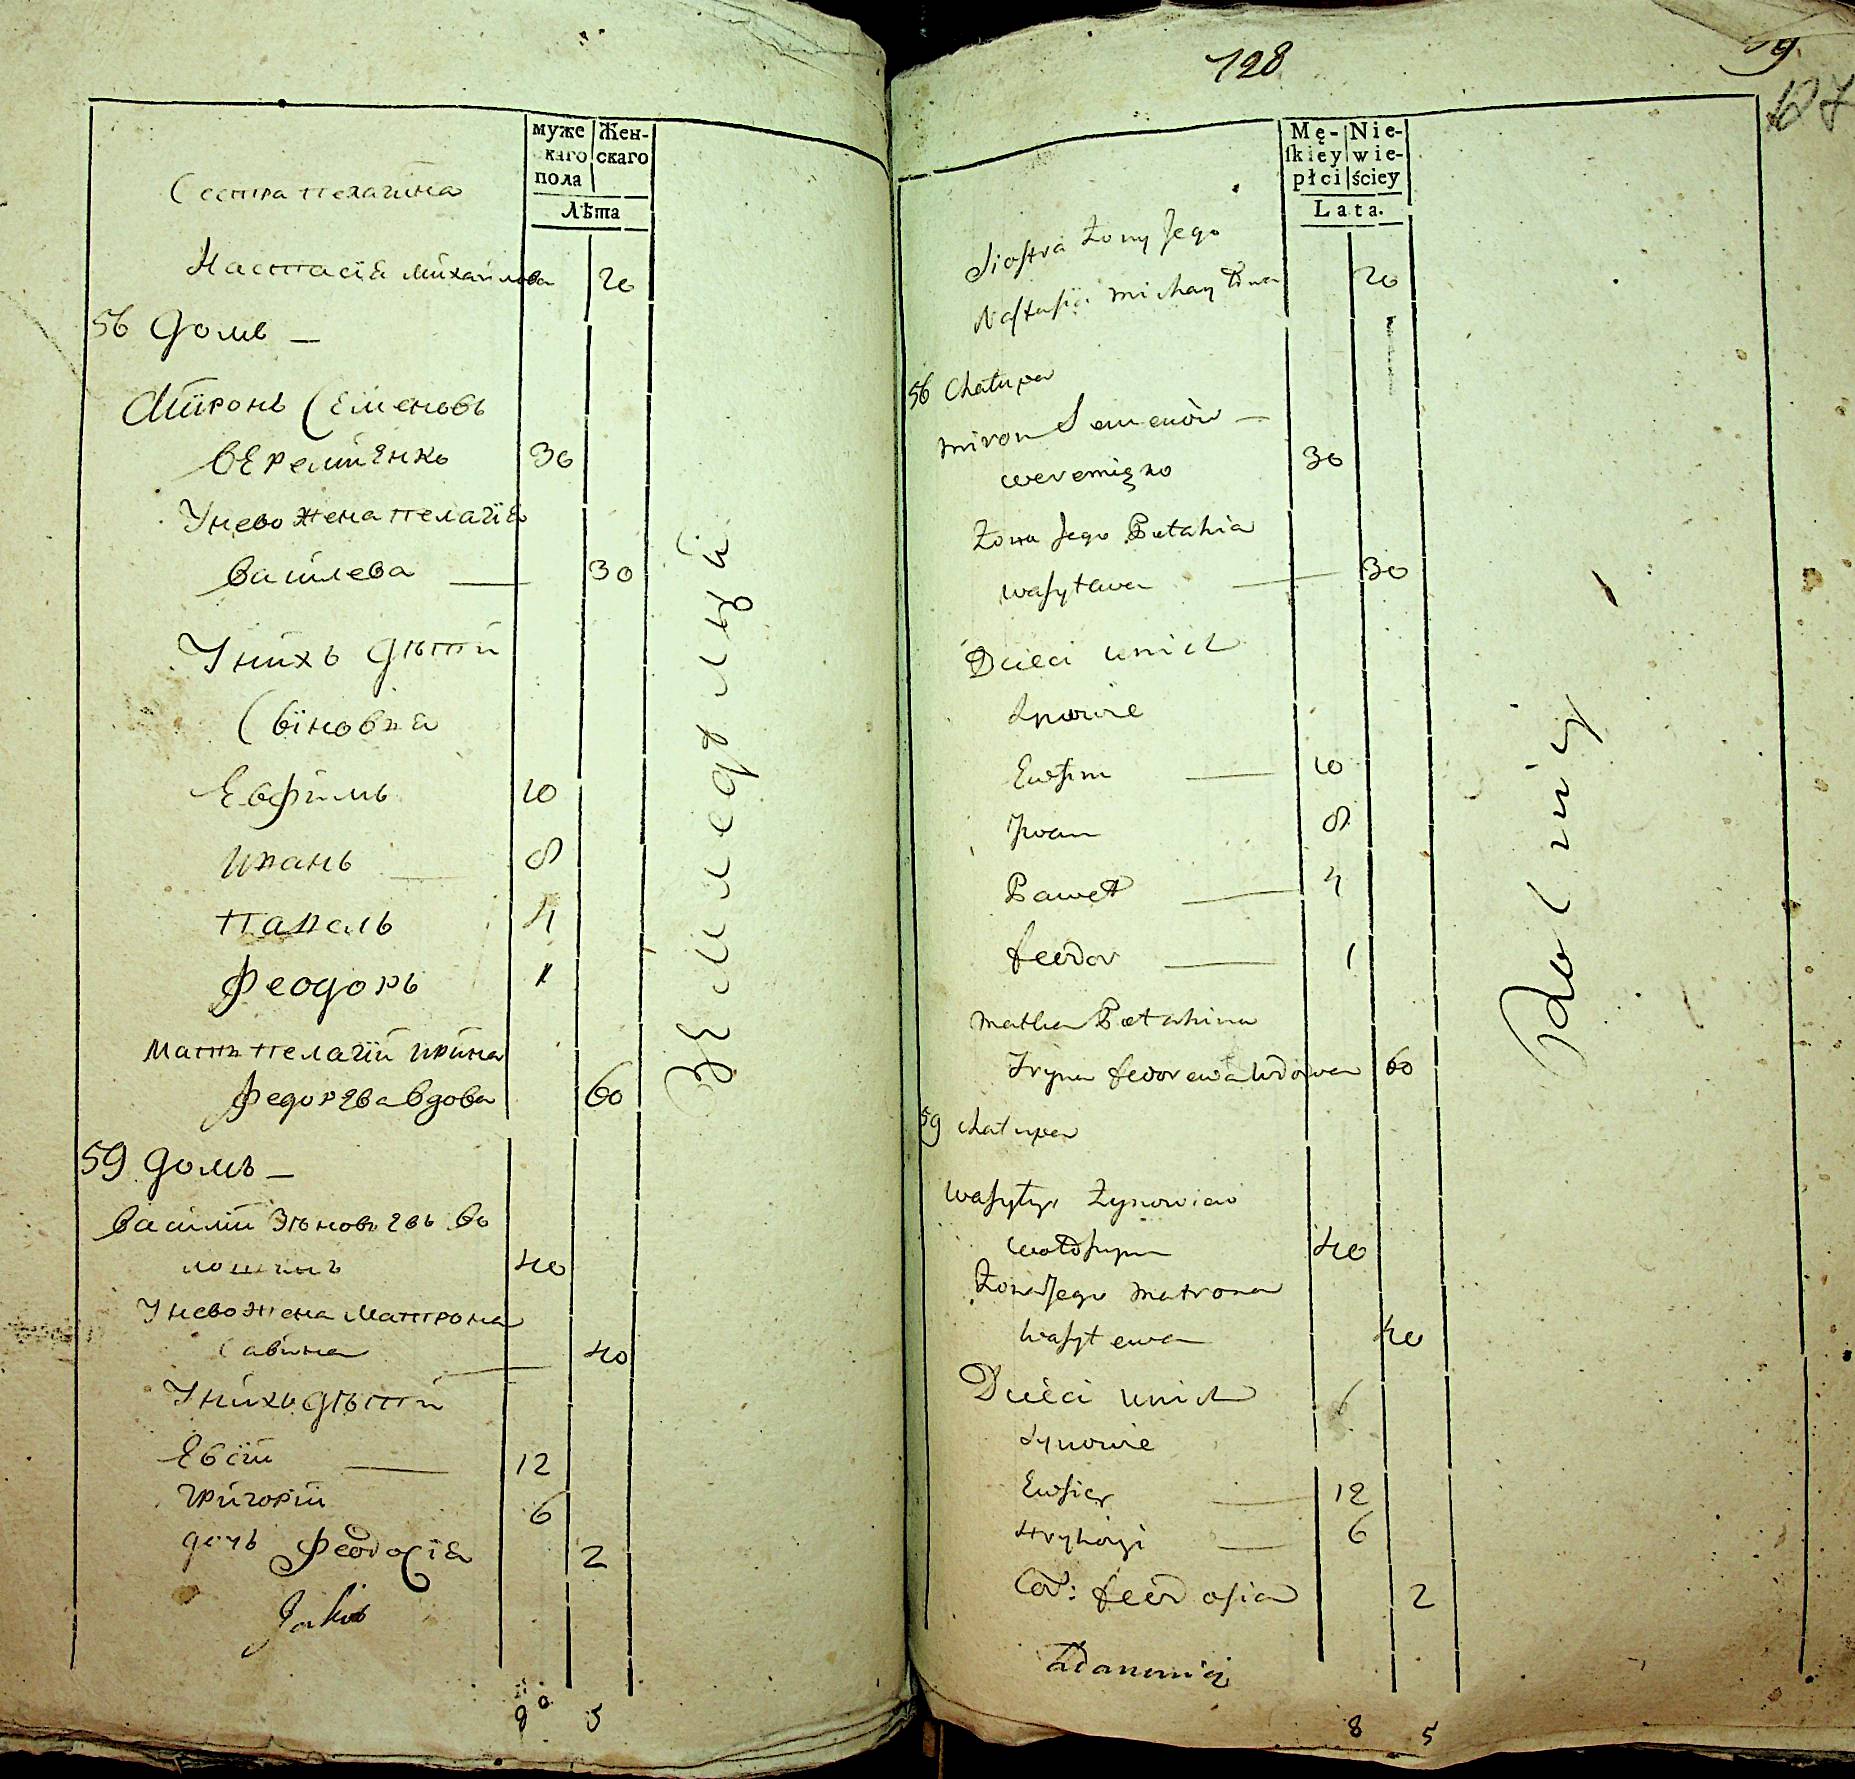 муже Жен-
каго скаго
пола
Лѣта
Сестра пелагиina
Настасїя Михайлова 20
56 Домъ —
Миронъ Семеновъ
веремѣенко 30
У нево жена пелагїя
василева — 30
У нихъ дѣти
Сїновья
Евфимъ 10
Иванъ — 8
павелъ 4
Феодоръ 1
мать пелагїи ирина
федорова вдова 60
59 домъ —
василий Зѣновьевъ во
лошинъ 40
У нево жена Матрона
Савина — 40
У нихъ дѣти
Евсїй — 12
григорий 6
дочь Феодосїя 2
8 5
Земледѣлцы
128
59
127
Mę- Nie-
ſkiey wie-
płci ściey
Lata.
Siostra żony Jego
Nastasija michayłowa 20
56 Chałupa
miron Semenów —
weremięko 30
Żona Jego Pełahia
wasylewa — 30
Dzieci u nich
Synowie
Ewfim — 10
Jwan 8
Paweł — 4
feodor — 1
matka Pełahina
Iryna fedorewa wdowa 60
59 chałupa
wasyly Zynowiew
wołoszyn 40
Żona Jego matrona
wasylewa 40
Dzieci u nich
Synowie
Ewsiey — 12
Hryhory — 6
Cor: feodosia 2
8 5
Rolnicy